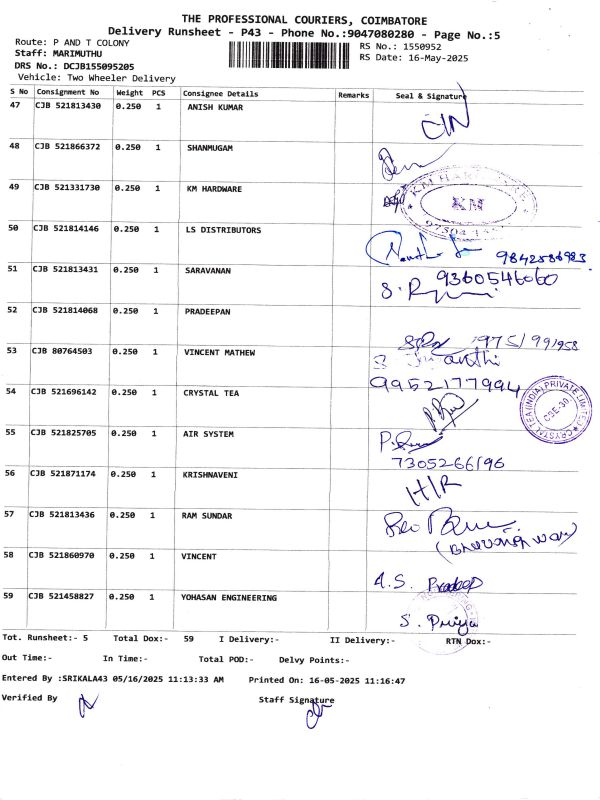 THE PROFESSIONAL COURIERS, COIMBATORE
Delivery Runsheet - P43 - Phone No.:9047080280 - Page No.:5
Route: P AND T COLONY
Staff: MARIMUTHU
RS No.: 1550952
DRS No.: DCJB155095205
RS Date: 16-May-2025
Vehicle: Two Wheeler Delivery
S No Consignment No Weight PCS Consignee Details Remarks Seal & Signature
47 CJB 521813430 0.250 1 ANISH KUMAR
48 CJB 521866372 0.250 1 SHANMUGAM
49 CJB 521331730 0.250 1 KM HARDWARE
KM HARDWARE
KM
50 CJB 521814146 0.250 1 LS DISTRIBUTORS
9842586983
51 CJB 521813431 0.250 1 SARAVANAN 9360546060
52 CJB 521814068 0.250 1 PRADEEPAN
53 CJB 80764503 0.250 1 VINCENT MATHEW
9952177994
54 CJB 521696142 0.250 1 CRYSTAL TEA
CRYSTAL TEA (INDIA) PRIVATE LIMITED
CBE-30.
55 CJB 521825705 0.250 1 AIR SYSTEM
7305266196
56 CJB 521871174 0.250 1 KRISHNAVENI H/R
57 CJB 521813436 0.250 1 RAM SUNDAR
58 CJB 521860970 0.250 1 VINCENT
A.S. Pradeep
59 CJB 521458827 0.250 1 YOHASAN ENGINEERING
S. Priya
Tot. Runsheet:- 5 Total Dox:- 59 I Delivery:- II Delivery:- RTN Dox:-
Out Time:- In Time:- Total POD:- Delvy Points:-
Entered By :SRIKALA43 05/16/2025 11:13:33 AM Printed On: 16-05-2025 11:16:47
Verified By Staff Signature